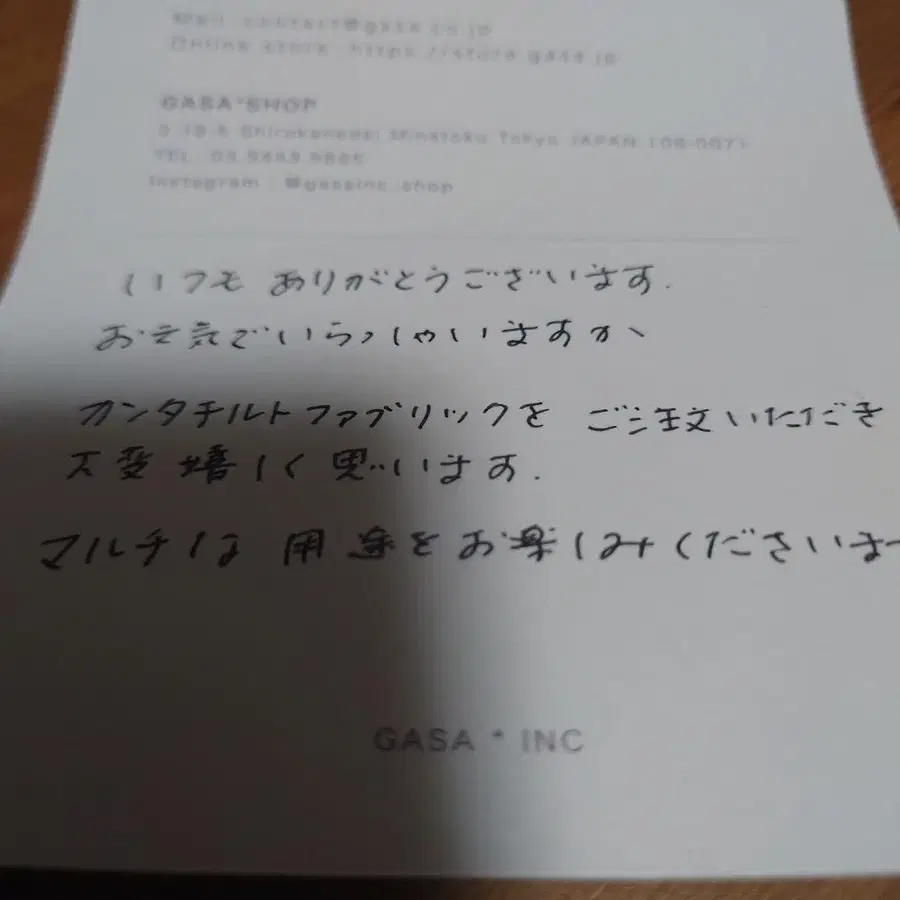 Mail contact@gasa.co.jp
Online store https://store.gasa.jp
GASA*SHOP
Shirokanedai Minatoku Tokyo JAPAN
TEL 03
Instagram : @gasainc_shop
いつも ありがとうございます.
お元気でいらっしゃいますか、
カンタチルトファブリックを ご注文いただき
大変 嬉しく 思います.
マルチな 用途を お楽しみくださいませ
GASA * INC